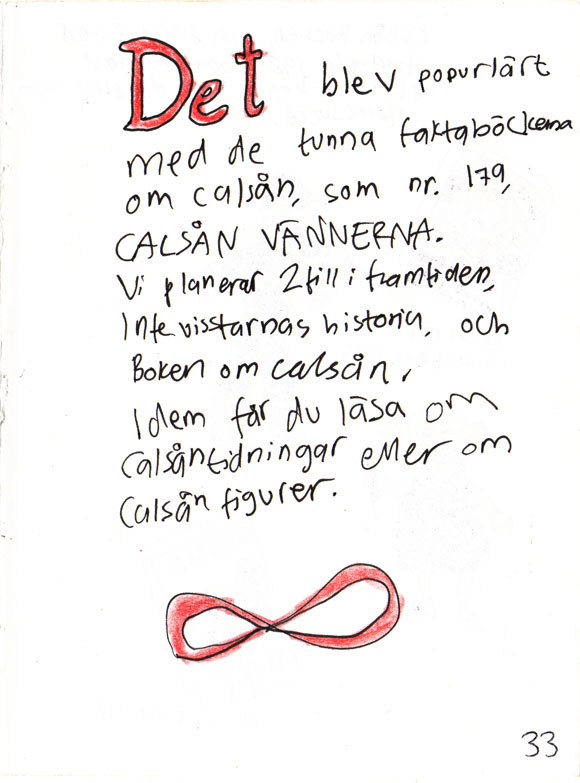 Det blev popurlärt
med de tunna faktaböckerna
om calsån, som nr. 179,
CALSÅN VÄNNERNA.
Vi planerar 2 till i framtiden,
Intevisstarnas historia, och
Boken om calsån,
I dem får du läsa om
calsåntidningar eller om
calsån figurer.
33